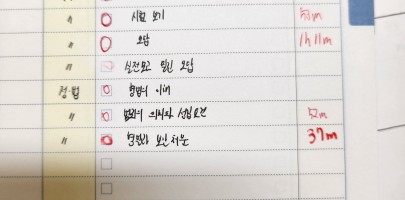 " 시험 보기 50m
" 오답 1h 11m
" 실전모고 밀린 오답
정·법 형법의 이해
" 범죄의 의미와 성립요건 52m
" 형벌과 보안처분 37m